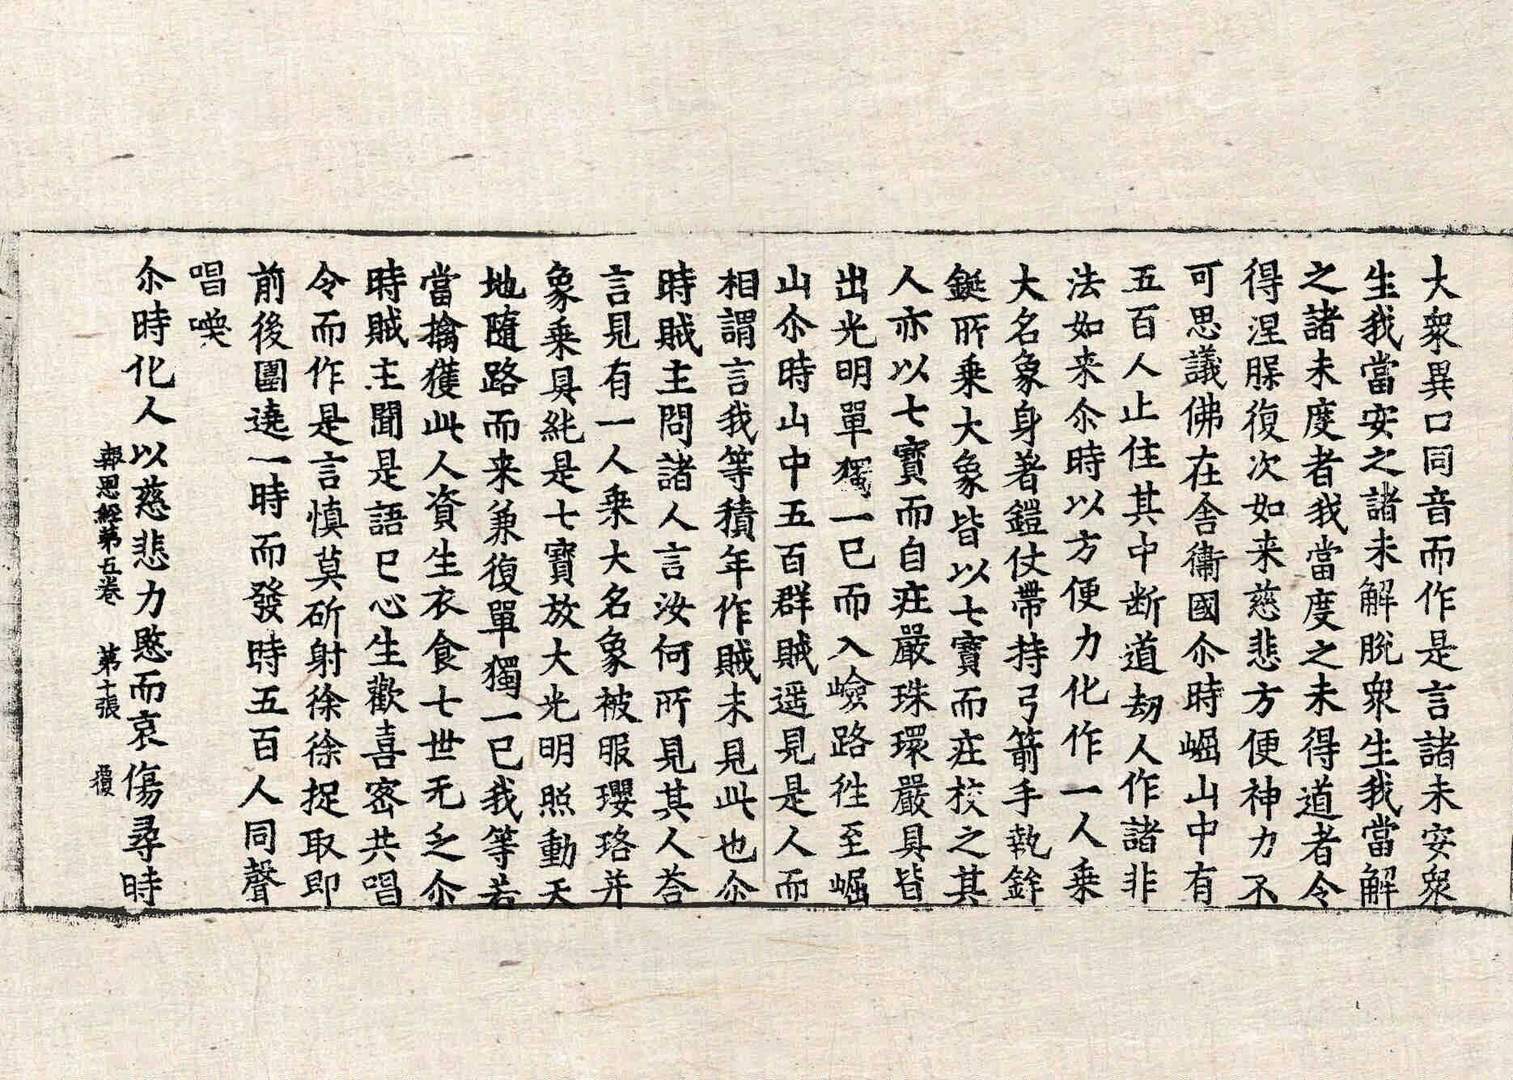 大衆異口同音而作是言諸未安衆
生我當安之諸未解脫衆生我當解
之諸未度者我當度之未得道者令
得涅槃復次如来慈悲方便神力不
可思議佛在舍衞國尒時崛山中有
五百人止住其中断道劫人作諸非
法如来尒時以方便力化作一人乗
大名象身著鎧仗帶持弓箭手執鉾
鋋所乗大象皆以七寶而庄校之其
人亦以七寶而自庄嚴珠環嚴具皆
出光明單獨一己而入嶮路徃至崛
山尒時山中五百群賊遥見是人而
相謂言我等積年作賊未見此也尒
時賊主問諸人言汝何所見其人荅
言見有一人乗大名象被服瓔珞并
象乗具純是七寶放大光明照動天
地隨路而来兼復單獨一己我等若
當擒獲此人資生衣食七世无乏尒
時賊主聞是語已心生歡喜密共唱
令而作是言慎莫斫射徐徐捉取即
前後圍遶一時而發時五百人同聲
唱喚
尒時化人以慈悲力愍而哀傷尋時
報恩經第五卷 第十張 覆